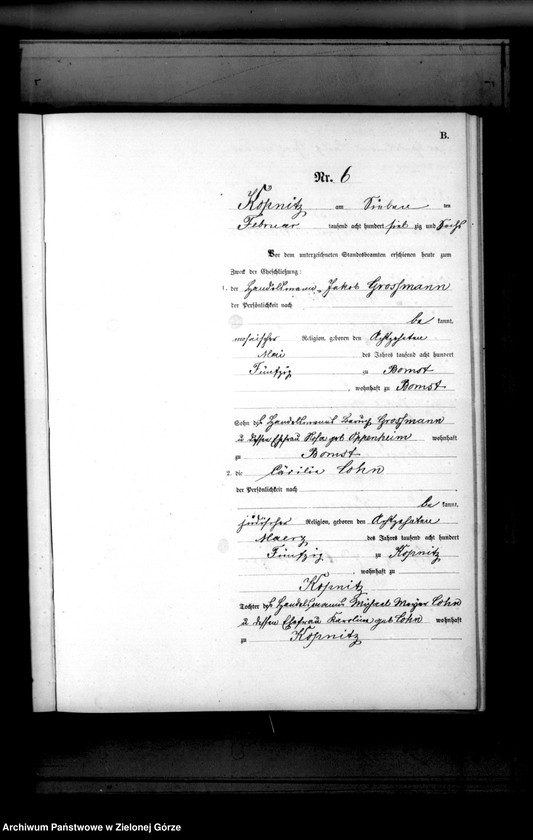 B.
Nr. 6
Kopnitz am Sieben ten
Februar tausend acht hundert zig und Sechs
Vor dem unterzeichneten Standesbeamten erschienen heute zum
Zweck der Eheschließung:
1. der Handelsmann Jakob Grossmann
der Persönlichkeit nach
be kannt,
mosaischer Religion, geboren den Achtzehnten
Mai des Jahres tausend acht hundert
Fünfzig zu Bomst
, wohnhaft zu Bomst
Sohn des Handelsmanns Grossmann
u dessen Ehefrau Rosa geb Oppenheim wohnhaft
zu Bomst
2. die Cäcilie Cohn
der Persönlichkeit nach
be kannt,
jüdischer Religion, geboren den Achtzehnten
Maerz des Jahres tausend acht hundert
Fünfzig zu Kopnitz
, wohnhaft zu
Kopnitz
Tochter des Handelsmanns Michael Meyer Cohn
u dessen Ehefrau Karoline geb Cohn wohnhaft
zu Kopnitz
Archiwum Państwowe w Zielonej Górze